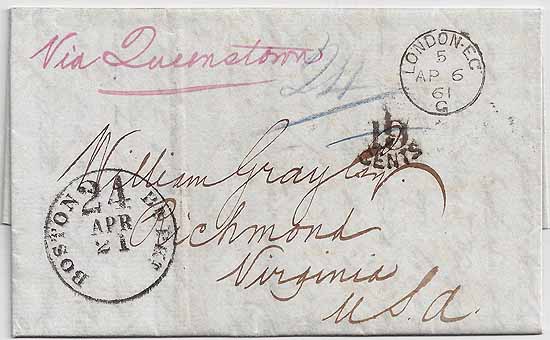 Via Queenstown
24
LONDON·EC
5
AP 6
61
G
19
CENTS
William Gray Esq
Richmond
Virginia
U.S.A.
BOSTON BR. PKT
24
APR
21